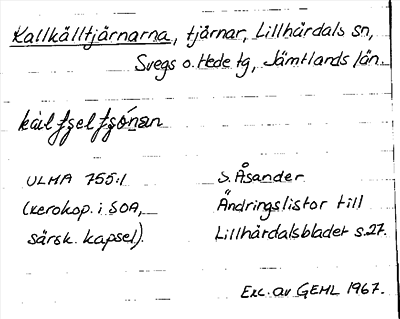 Kallkälltjärnarna, tjärnar, Lillhärdals sn,
Svegs o. Hede tg, Jämtlands län.
ULMA 755:1
(xerokop. i SOA,
särsk. kapsel).
S. Åsander
Ändringslistor till
Lillhärdalsbladet s. 27.
Exc. av GEHL 1967.